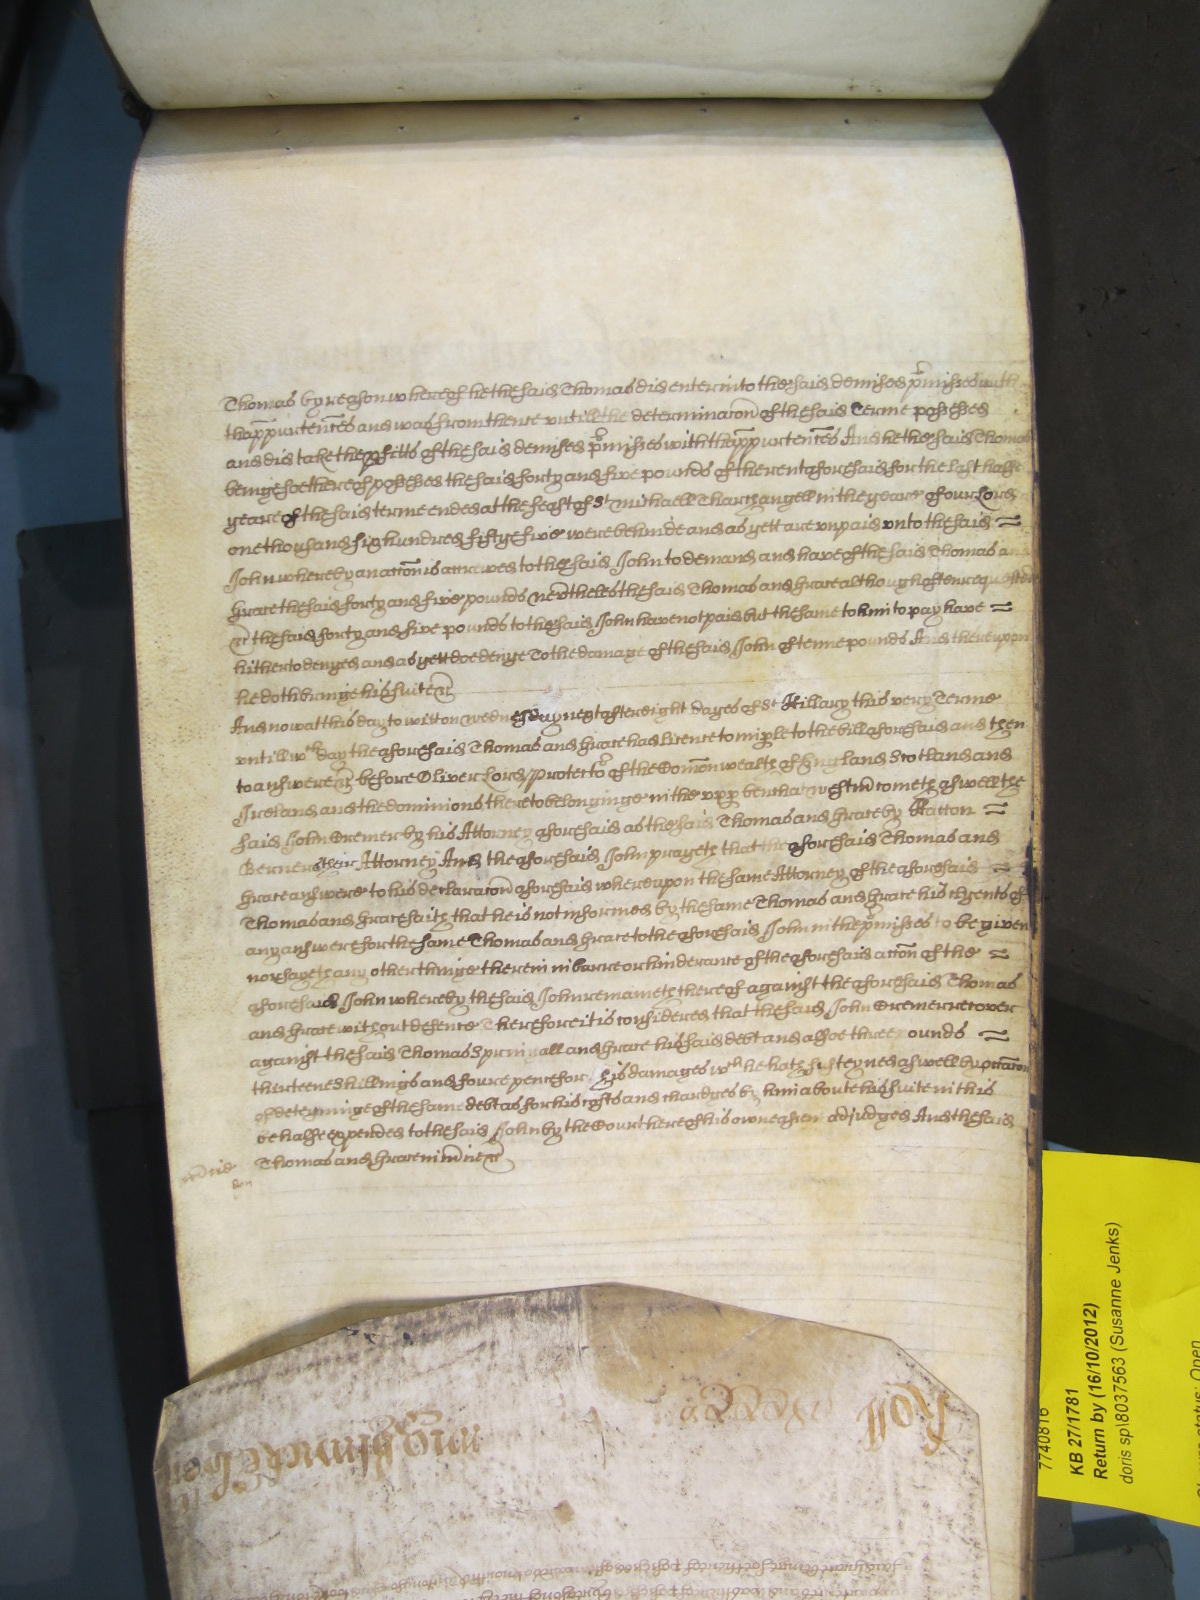 Thomas by reason whereof he the said Thomas did enter into the said demised p'misses with
thapp'urtenñces and was from thence untill the determinacõn of the said Terme possessed
and did take the p'fitts of the said demised p'misses with thapp'urtenñces And he the said Thomas
being soe thereof possessed the said forty and five pounds of the rent aforesaid for the last halfe
yeare of the said terme ended at the feast of St Michaell Tharchangell in the yeare of our Lord
one thousand six hundred fifty five were behinde and as yett are unpaid unto the said =
John whereby an accõn is accrewed to the said John to demand and have of the said Thomas and
Grace the said forty and five pounds nev'theles the said Thomas and Grace although often requested
&c the said forty and five pounds to the said John have not paid but the same to him to pay have =
hitherto denyed and as yett doe denye To the damage of the said John of tenne pounds And thereupon
he doth bringe his suite &c
And now at this day to witt on wednesday next after eight dayes of St Hillary this very Terme
untill wch day the aforesaid Thomas and Grace had licence to imp'le to the bill aforesaid and then
to answere &c before Oliver Lord Protector of the Com̃onwealth of England Scotland and
Ireland and the dominions thereto belonginge in the upp' bench at westm̃ cometh aswell the
said John Cremer by his Attorney aforesaid as the said Thomas and Grace by Hatton =
Berners their Attorney And the aforesaid John prayeth that the aforesaid Thomas and
Grace answere to his declaracõn aforesaid whereupon the same Attorney of the aforesaid =
Thomas and Grace saith that he is not informed by the same Thomas and Grace his clyents of
any answere for the same Thomas and Grace to the aforesaid John in the p'misses to be given
nor sayeth any other thinge therein in barre or hinderance of the aforesaid accõn of the =
aforesaid John whereby the said John remaineth thereof against the aforesaid Thomas
and Grace without defence Therefore it is considered that the said John Cremer recover
against the said Thomas and Grace his said debt and alsoe three pounds =
thirteene shillings and foure pence for his damages wch he hath susteyned aswell by occacõn
of deteyninge of the same debt as for his costs and chardges by him about his suite in this
behalfe expended to the said John by the Court here of his owne assent adjudged And the said
Thomas and Grace in m̃cie &c
Roll
7740816
KB 27/1781
Return by (16/10/2012)
doris sp\8037563 (Susanne Jenks)
status: Open